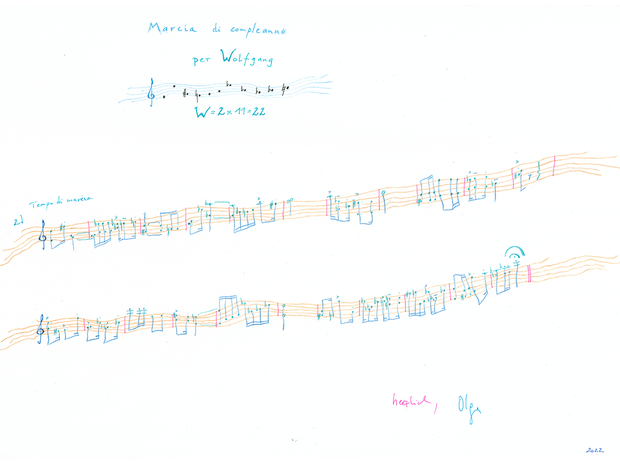 Marcia di compleanno
per Wolfgang
W = 2 x 11 = 22
Tempo di marcia
herzlich, Olga
2022